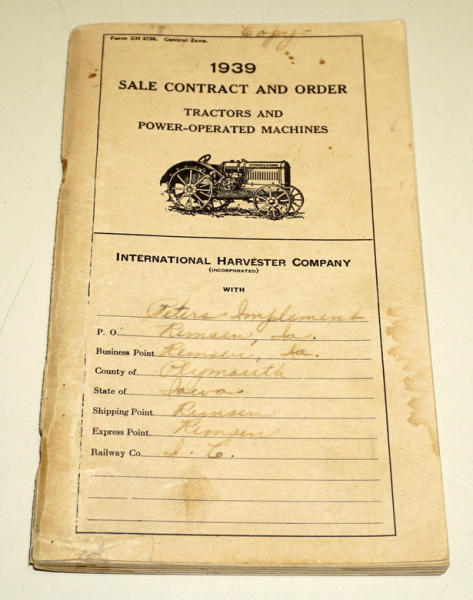 Copy
Form CH 2736. Central Zone.
1939
SALE CONTRACT AND ORDER
TRACTORS AND
POWER-OPERATED MACHINES
INTERNATIONAL HARVESTER COMPANY
(INCORPORATED)
WITH
Peters Implement
P. O. Remsen, Ia.
Business Point Remsen, Ia.
County of Plymouth
State of Iowa
Shipping Point Remsen
Express Point Remsen
Railway Co. I. C.